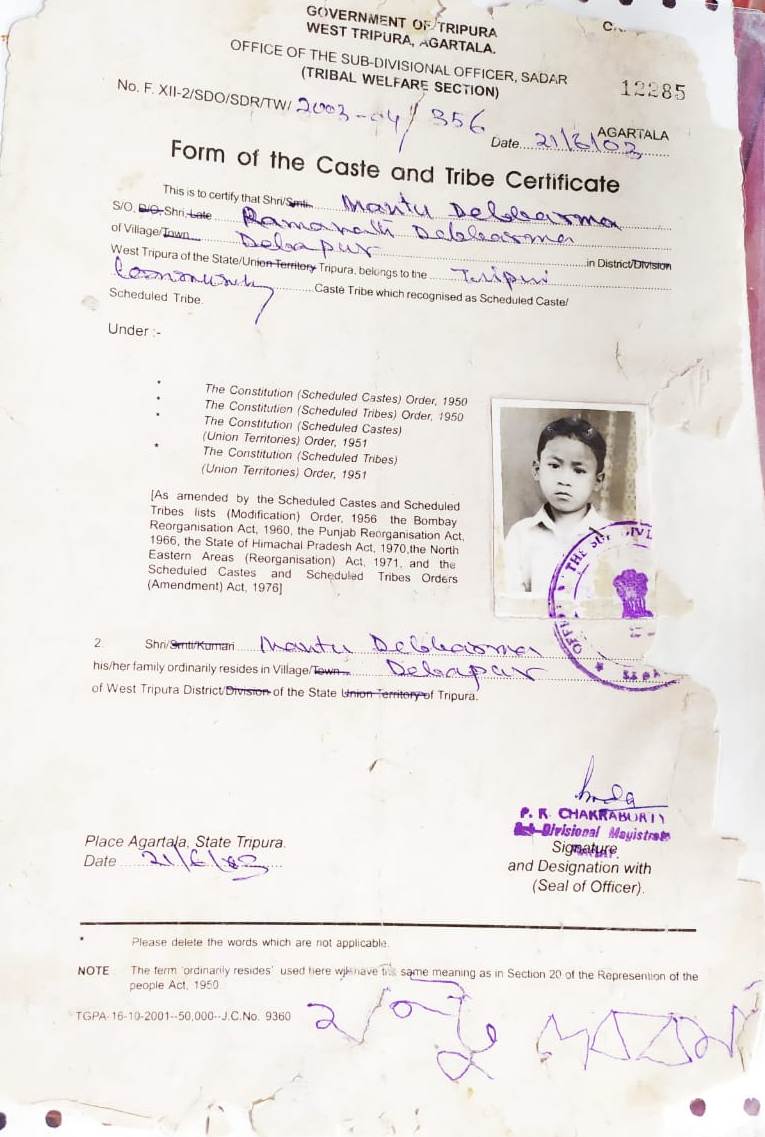 GOVERNMENT OF TRIPURA
WEST TRIPURA, AGARTALA.
OFFICE OF THE SUB-DIVISIONAL OFFICER, SADAR
(TRIBAL WELFARE SECTION)
12285
No. F. XII-2/SDO/SDR/TW/ 2003-04/ 356
AGARTALA
Date 21/6/03
Form of the Caste and Tribe Certificate
This is to certify that Shri/Smti. Mantu Debbarma
S/O. D/O. Shri, Late Ramanath Debbarma
of Village/Town Debapur in District/Division
West Tripura of the State/Union Territory Tripura, belongs to the Tripuri
Community Caste Tribe which recognised as Scheduled Caste/
Scheduled Tribe.
Under :-
* The Constitution (Scheduled Castes) Order, 1950
* The Constitution (Scheduled Tribes) Order, 1950
* The Constitution (Scheduled Castes)
(Union Territories) Order, 1951
* The Constitution (Scheduled Tribes)
(Union Territories) Order, 1951
[As amended by the Scheduled Castes and Scheduled
Tribes lists (Modification) Order, 1956 the Bombay
Reorganisation Act, 1960, the Punjab Reorganisation Act,
1966, the State of Himachal Pradesh Act, 1970,the North
Eastern Areas (Reorganisation) Act, 1971, and the
Scheduled Castes and Scheduled Tribes Orders
(Amendment) Act, 1976]
THE SUB DIVI
2. Shri/Smti/Kumari Mantu Debbarma
his/her family ordinarily resides in Village/Town Debapur
of West Tripura District/Division of the State Union Territory of Tripura.
P. K. CHAKRABORTY
Sub-Divisional Magistrate
Place Agartala, State Tripura.
Date 21/6/03
Signature
and Designation with
(Seal of Officer).
* Please delete the words which are not applicable.
NOTE The term 'ordinarily resides' used here will have the same meaning as in Section 20 of the Represention of the
people Act, 1950
TGPA-16-10-2001--50,000--J.C.No. 9360